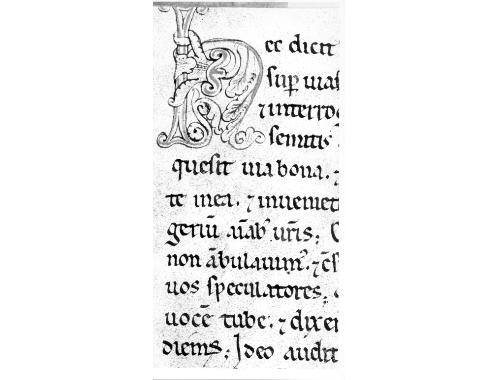 Hec dicit
sup uias
⁊ interro
semitis
que sit uia bona. ⁊
te in ea. ⁊ inueniet
geriū aīab' uris; 
non ābulauim'. ⁊ c̄s
uos speculatores;
uocē tube. ⁊ dixer
diemus; Ideo audit